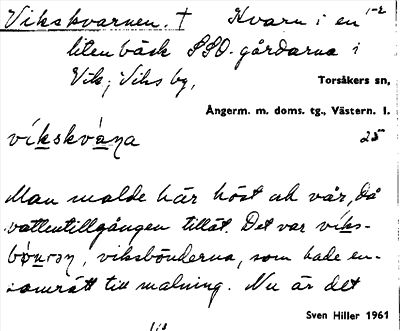 Vikskvarnen. † Kvarn i en 1-2
liten bäck SSO. gårdarna i
Vik, Viks by, Torsåkers sn,
Ångerm. m. doms. tg., Västern. l.
víkskvàṇa 25
Man malde här höst och vår, då
vattentillgången tillät. Det var víks-
, viksbönderna, som hade en-
samrätt till malning. Nu är det
Sven Hiller 1961